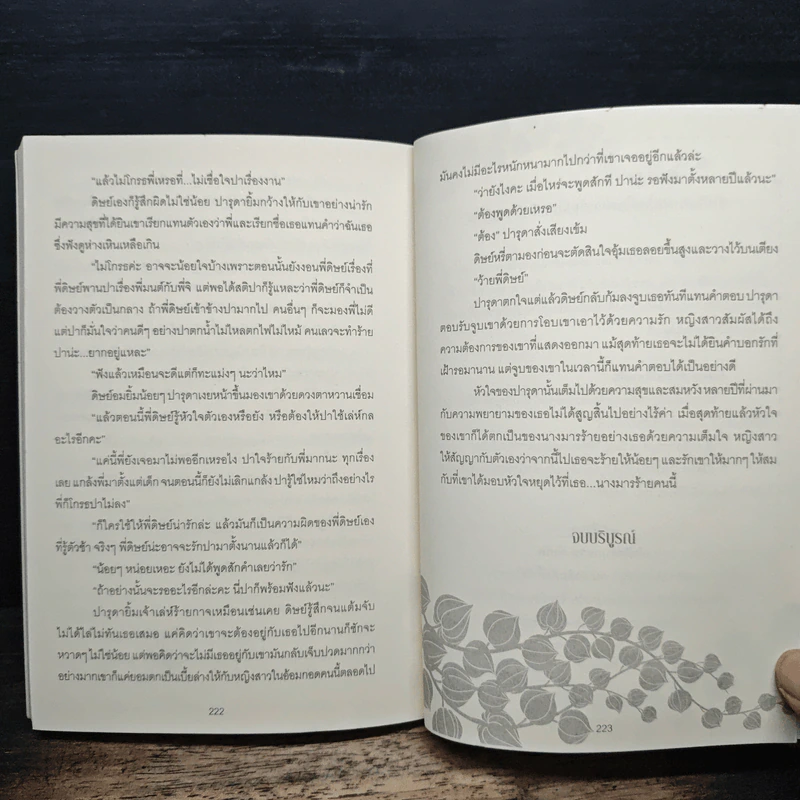 “แล้วไม่โกรธพี่เหรอที่...ไม่เชื่อใจปาเรื่องงาน”
ดิษย์เองก็รู้สึกผิดไม่ใช่น้อย ปารุดายิ้มกว้างให้กับเขาอย่างน่ารัก
มีความสุขที่ได้ยินเขาเรียกแทนตัวเองว่าพี่และเรียกชื่อเธอแทนคำว่าฉันเธอ
ซึ่งฟังดูห่างเหินเหลือเกิน
“ไม่โกรธค่ะ อาจจะน้อยใจบ้างเพราะตอนนั้นยังงอนพี่ดิษย์เรื่องที่
พี่ดิษย์พานปาเรื่องพี่มนต์กับพี่จิ แต่พอได้สติปาก็รู้แหละว่าพี่ดิษย์ก็จำเป็น
ต้องวางตัวเป็นกลาง ถ้าพี่ดิษย์เข้าข้างปามากไป คนอื่นๆ ก็จะมองพี่ไม่ดี
แต่ปาก็มั่นใจว่าคนดีๆ อย่างปาตกน้ำไม่ไหลตกไฟไม่ไหม้ คนเลวจะทำร้าย
ปาน่ะ...ยากอยู่แหละ”
“ฟังแล้วเหมือนจะดีแต่ก็ทะแม่งๆ นะว่าไหม”
ดิษย์อมยิ้มน้อยๆ ปารุดาเงยหน้าขึ้นมองเขาด้วยดวงตาหวานเชื่อม
“แล้วตอนนี้พี่ดิษย์รู้หัวใจตัวเองหรือยัง หรือต้องให้ปาใช้เล่ห์กล
อะไรอีกคะ”
“แค่นี้พี่ยังเจอมาไม่พออีกเหรอไง ปาใจร้ายกับพี่มากนะ ทุกเรื่อง
เลย แกล้งพี่มาตั้งแต่เด็ก จนตอนนี้ก็ยังไม่เลิกแกล้ง ปารู้ใช่ไหมว่าถึงอย่างไร
พี่ก็โกรธปาไม่ลง”
“ก็ใครใช้ให้พี่ดิษย์น่ารักล่ะ แล้วมันก็เป็นความผิดของพี่ดิษย์เอง
ที่รู้ตัวช้า จริงๆ พี่ดิษย์น่ะอาจจะรักปามาตั้งนานแล้วก็ได้”
“น้อยๆ หน่อยเหอะ ยังไม่ได้พูดสักคำเลยว่ารัก”
“ถ้าอย่างนั้นจะรออะไรอีกล่ะคะ นี่ปาก็พร้อมฟังแล้วนะ”
ปารุดายิ้มเจ้าเล่ห์ร้ายกาจเหมือนเช่นเคย ดิษย์รู้สึกจนแต้มจับ
ไม่ได้ไล่ไม่ทันเธอเสมอ แค่คิดว่าเขาจะต้องอยู่กับเธอไปอีกนานก็ชักจะ
หวาดๆ ไม่ใช่น้อย แต่พอคิดว่าจะไม่มีเธออยู่กับเขามันกลับเจ็บปวดมากกว่า
อย่างมากเขาก็แค่ยอมตกเป็นเบี้ยล่างให้กับหญิงสาวในอ้อมกอดคนนี้ตลอดไป
222
มันคงไม่มีอะไรหนักหนามากไปกว่าที่เขาเจออยู่อีกแล้วล่ะ
“ว่ายังไงคะ เมื่อไหร่จะพูดสักที ปาน่ะ รอฟังมาตั้งหลายปีแล้วนะ”
“ต้องพูดด้วยเหรอ”
“ต้อง” ปารุดาสั่งเสียงเข้ม
ดิษย์หรี่ตามองก่อนจะตัดสินใจอุ้มเธอลอยขึ้นสูงและวางไว้บนเตียง
“ว้ายพี่ดิษย์”
ปารุดาตกใจแต่แล้วดิษย์กลับก้มลงจูบเธอทันทีแทนคำตอบ ปารุดา
ตอบรับจูบเขาด้วยการโอบเขาเอาไว้ด้วยความรัก หญิงสาวสัมผัสได้ถึง
ความต้องการของเขาที่แสดงออกมา แม้สุดท้ายเธอจะไม่ได้ยินคำบอกรักที่
เฝ้ารอมานาน แต่จูบของเขาในเวลานี้ก็แทนคำตอบได้เป็นอย่างดี
หัวใจของปารุดานั้นเต็มไปด้วยความสุขและสมหวังหลายปีที่ผ่านมา
กับความพยายามของเธอไม่ได้สูญสิ้นไปอย่างไร้ค่า เมื่อสุดท้ายแล้วหัวใจ
ของเขาก็ได้ตกเป็นของนางมารร้ายอย่างเธอด้วยความเต็มใจ หญิงสาว
ให้สัญญากับตัวเองว่าจากนี้ไปเธอจะร้ายให้น้อยๆ และรักเขาให้มากๆ ให้สม
กับที่เขาได้มอบหัวใจหยุดไว้ที่เธอ...นางมารร้ายคนนี้
จบบริบูรณ์
223